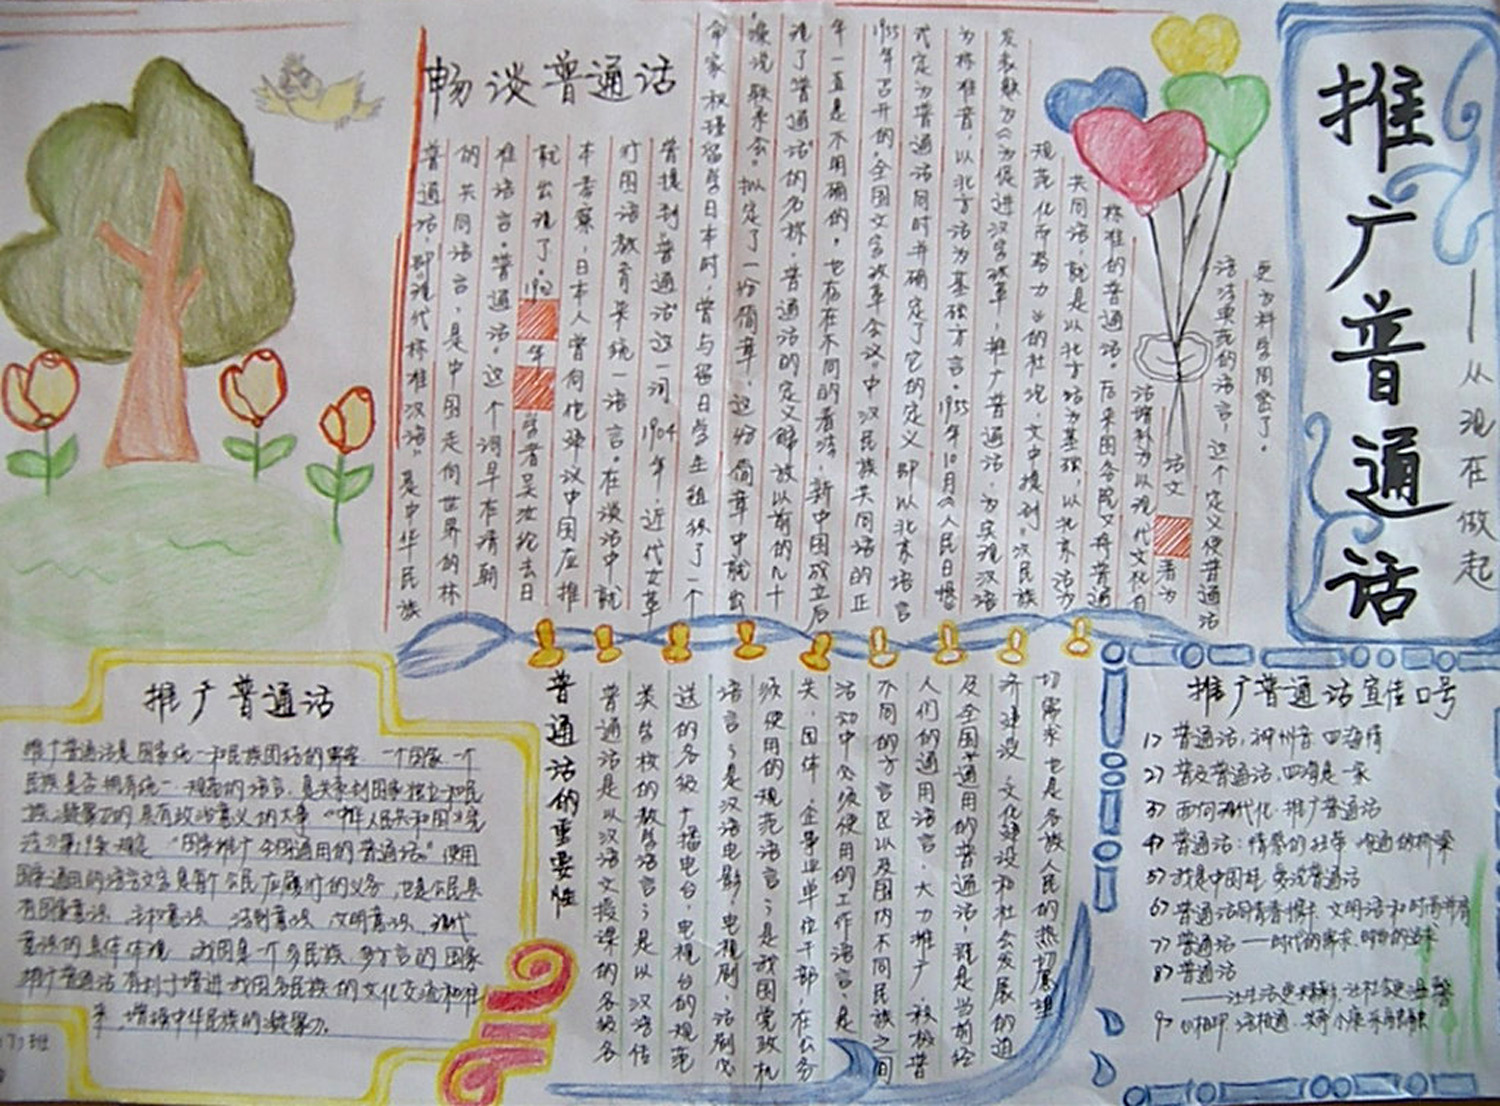 推广普通话
——从现在做起
畅谈普通话
普通话,即“现代标准汉语”是中华民族
的共同语言,是中国走向世界的林
准语言。普通话,这个词早在清朝
就出现了。1902年学者吴汝纶去日
本考察,日本人曾向他建议中国应推
行国语教育来统一语言。在谈话中就
曾提到“普通话”这一词。1904年,近代女革
命家秋瑾留学日本时,曾与留日学生组织了一个
“演说联系会”拟定了一份简章,这份简章中就出
现了“普通话”的名称。普通话的定义解放以前的几十
年一直是不明确的,也存在不同的看法,新中国成立后
1955年召开的“全国文字改革会议”中汉民族共同语的正
式定为普通话同时并确定了它的定义即以北京语言
为标准音,以北方话为基础方言。1955年10月《人民日报
发表题为《为促进汉字改革、推广普通话、为实现汉语
规范化而努力》的社论,文中提到:汉民族
共同语,就是以北方话为基础,以北京话为
标准的普通话。后来国务院又将普通
话增补为以现代文化白
话文 著为
语法典范的语言,这个定义使普通话
更为科学周密了。
推广普通话
推广普通话是国家统一和民族团结的需要 一个国家一个
民族是否拥有统一、规范的语言,是关系到国家独立和民
族凝聚力的具有政治意义的大事 《中华人民共和国》宪
法》第19条规定 “国家推广全国通用的普通话。”使用
国家通用的语言文字是每个公民应履行的义务,也是公民具
有国家意识、主权意识、法制意识、文明意识、现代
意识的具体体现 我国是一个多民族、多方言的国家
推广普通话有利于增进我国各民族的文化交流和往
来,增强中华民族的凝聚力。
(7)班
普通话的重要性
普通话是以汉语文授课的各级各
类学校的教学语言;是以汉语传
送的各级广播电台、电视台的规范
语言;是汉语电影、电视剧、话剧必
须使用的规范语言;是我国党政机
关、团体、企事业单位干部,在公务
活动中必须使用的工作语言;是
不同的方言区以及国内不同民族之间
人们的通用语言,大力推广、积极普
及全国通用的普通话,既是当前经
济建设、文化建设和社会发展的迫
切需求也是各族人民的热切愿望
推广普通话宣传口号
1> 普通话,神州音 四海情
2> 普及普通话,四海是一家
3> 面向现代化,推广普通话
4> 普通话:情感的纽带 沟通的桥梁
5> 我是中国娃 爱说普通话
6> 普通话同青春携手,文明语和时尚并肩
7> 普通话——时代的需求,时尚的追求
8> 普通话
——让生活更精彩,让社会更温馨
9> 心相印,语相通,